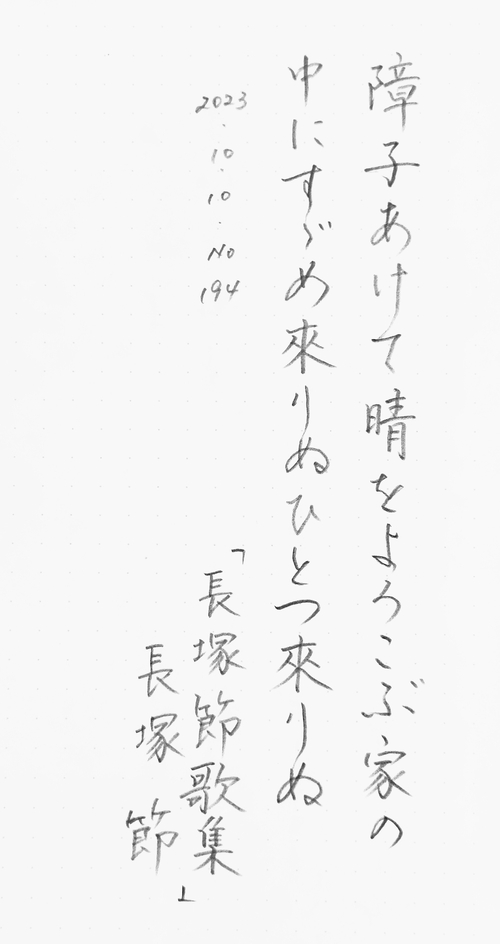 障子あけて晴をよろこぶ家の
中にすゞめ來りぬひとつ來りぬ
2023.10.10.No194
「長塚節歌集」
長塚節